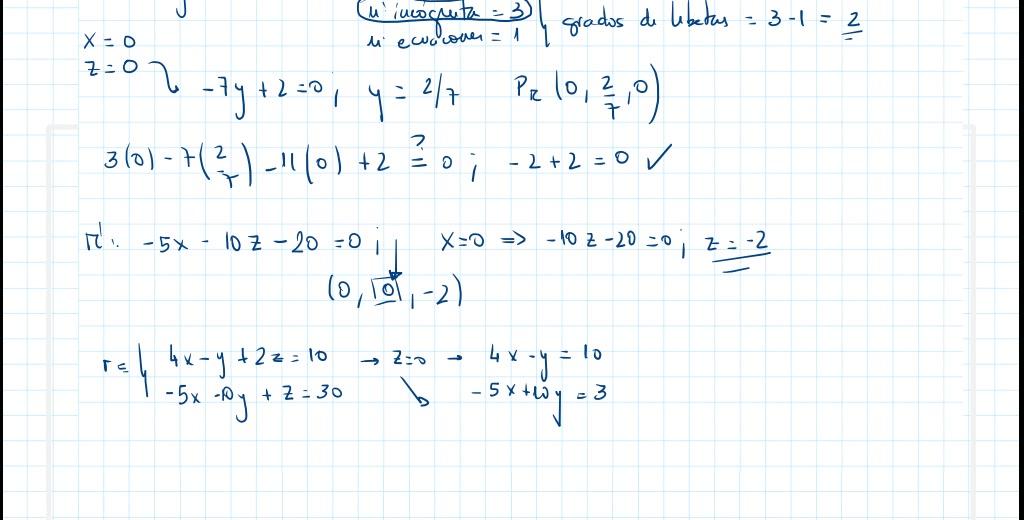 nº incognita = 3
nº ecuaciones = 1 } grados de libertas = 3-1 = 2
x = 0
z = 0
-7y + 2 = 0 ; y = 2/7 P_π (0, 2/7, 0)
3(0) - 7(2/7) - 11(0) + 2 ≟ 0 ; -2 + 2 = 0 ✓
π' : -5x - 10z - 20 = 0 ; x=0 => -10z - 20 = 0 ; z = -2
(0, 0, -2)
r ≡ { 4x - y + 2z = 10 → z=0 → 4x - y = 10
-5x -10y + z = 30 -5x +10y = 3